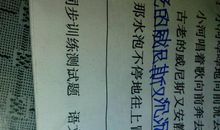 小河唱着歌向前奔去
古老的威尼斯又安静
的威尼斯又沉沉
那水泡不停地往上冒
同步训练测试题 语文